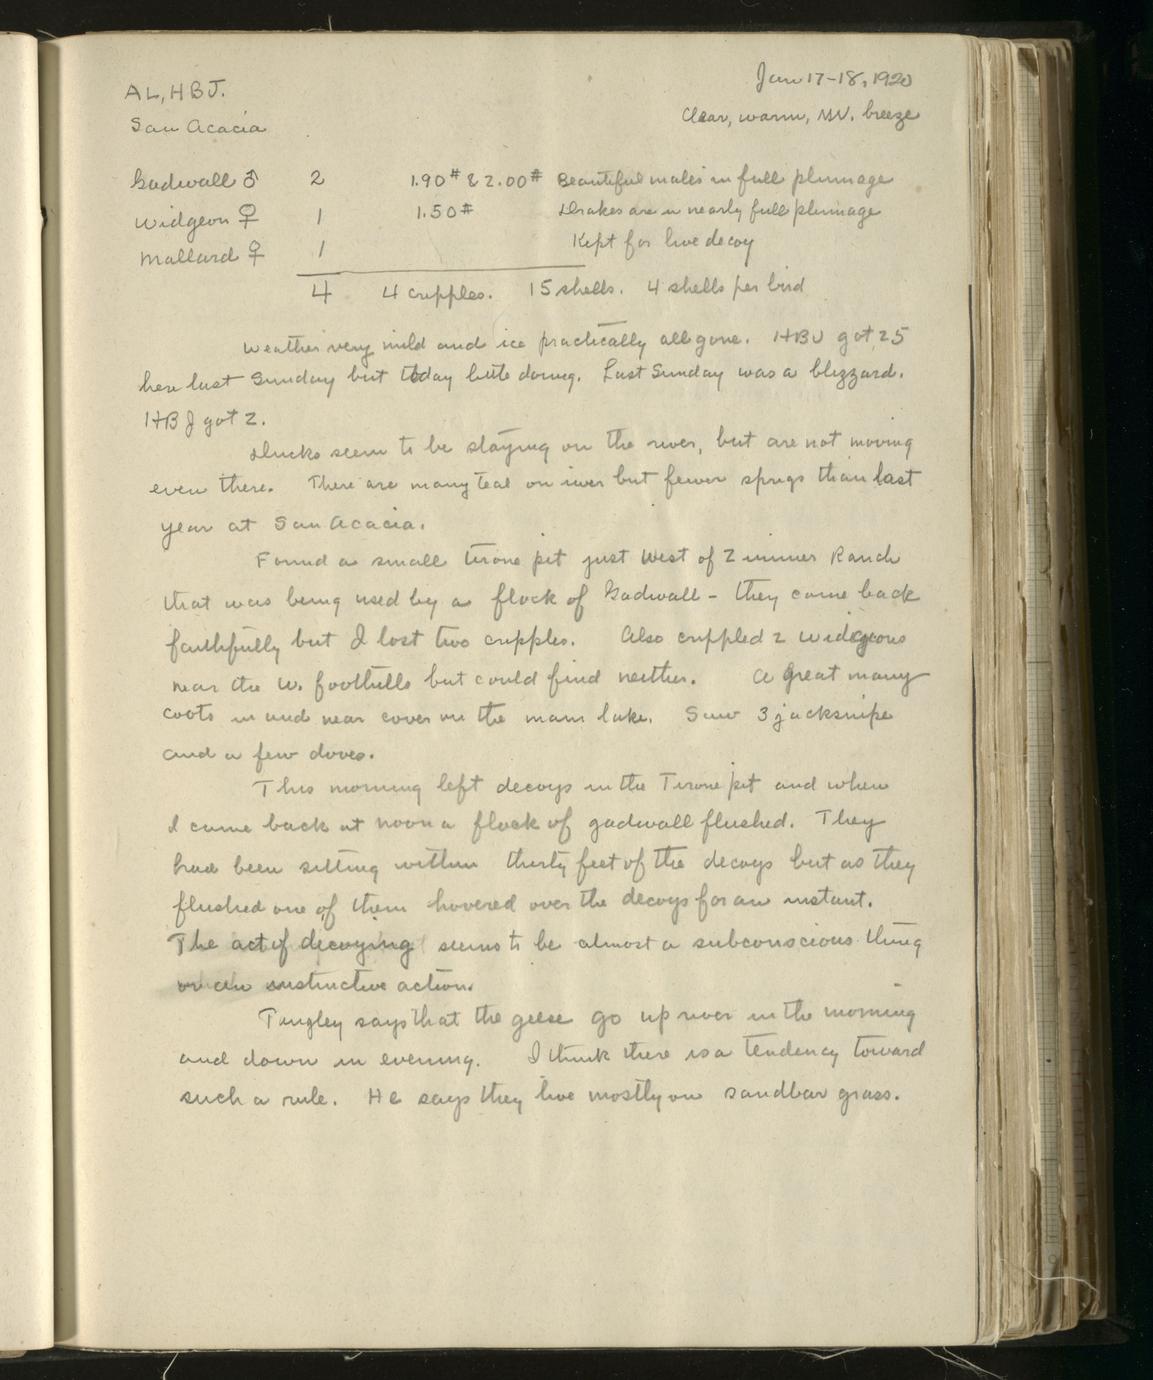 AL, HBJ.
Jan 17-18, 1920
San Acacia
Clear, warm, NW. breeze
Gadwall ♂ 2 1.90# & 2.00# Beautiful males in full plumage
Widgeon ♀ 1 1.50# Drakes are in nearly full plumage
Mallard ♀ 1 Kept for live decoy
4 4 cripples. 15 shells. 4 shells per bird
Weather very mild and ice practically all gone. HBJ got 25
here last Sunday but today little doing. Last Sunday was a blizzard.
HBJ got 2.
Ducks seem to be staying on the river, but are not moving
even there. There are many teal on river but fewer sprigs than last
year at San Acacia.
Found a small tirone pit just West of Zimmer Ranch
that was being used by a flock of Gadwall - they came back
faithfully but I lost two cripples. Also crippled 2 widgeons
near the W. foothills but could find neither. A great many
coots in and near cover on the main lake. Saw 3 jacksnipe
and a few doves.
This morning left decoys in the Tirone pit and when
I came back at noon a flock of gadwall flushed. They
had been sitting within thirty feet of the decoys but as they
flushed one of them hovered over the decoys for an instant.
The act of decoying seems to be almost a subconscious thing
or an instinctive action.
Tingley says that the geese go up river in the morning
and down in evening. I think there is a tendency toward
such a rule. He says they live mostly on sandbar grass.